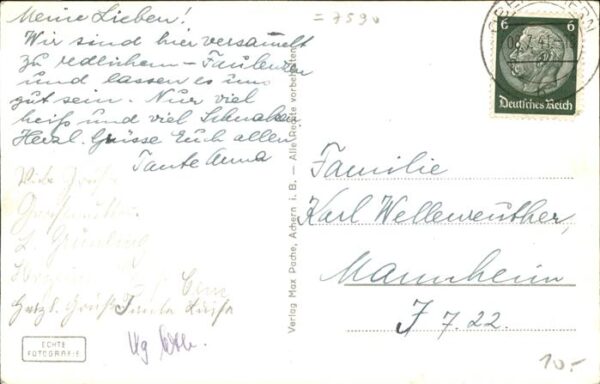 = 7590
Meine Lieben!
Wir sind hier versammelt
zu redlichem - Faulenzen
und lassen es uns
gut sein. Nur viel
heiß und viel Schnaken
Herzl. Grüsse Euch allen
Tante Anna
Viele Grüße
Großmutter
L. Grünling
Herzl. Gruß Tante Luise
ECHTE
FOTOGRAFIE
Verlag Max Pache, Achern i. B. - Alle Rechte vorbehalten
6 6
Deutsches Reich
Familie
Karl Welleweuther,
Mannheim
J 7. 22.
10.-